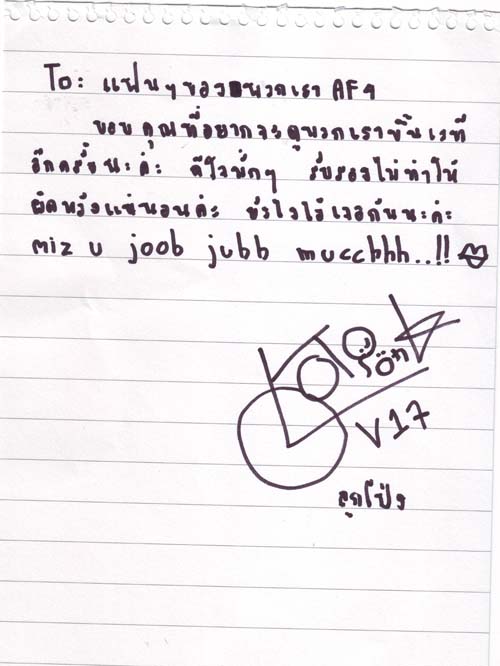 To: แฟนๆของพวกเรา AF4
ขอบคุณที่อยากจะดูพวกเราขึ้นเวที
อีกครั้งนะค่ะ ดีใจมั่กๆ รับรองไม่ทำให้
ผิดหวังแน่นอนค่ะ ชัวร์ไว้เจอกันนะค่ะ
miz u joob jubb mucchhh..!!
V17
ลูกโป่ง